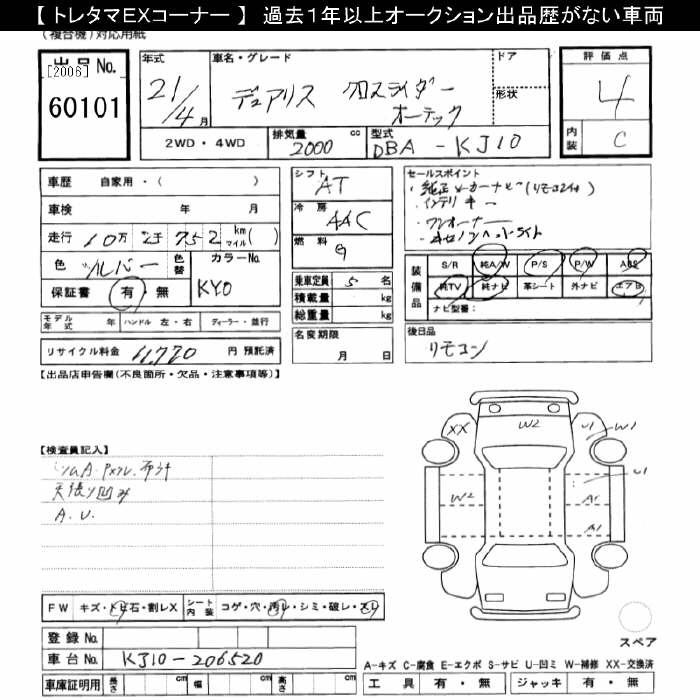 【 トレタマEXコーナー 】 過去1年以上オークション出品歴がない車両
(複合機)対応用紙
出品No.
[2006]
60101
年式
21/4月
車名・グレード
デュアリス クロスライダー
オーテック
ドア
形状
2WD・4WD
排気量 cc
2000
型式
DBA - KJ10
評価点
4
内装
C
車歴 自家用・( )
車検 年 月
走行 10万 752 km マイル( )
色 シルバー
色替
カラーNo.
KY0
保証書 有・無
モデル年式 年 ハンドル 左・右 ディーラー・並行
リサイクル料金 11,770 円 預託済
シフト
AT
冷房
AAC
燃料
G
乗車定員 5 名
積載量 kg
総重量 kg
名変期限
月 日
セールスポイント
・純正メーカーナビ(リモコン付)
・インテリキー
・ワンオーナー
・キセノンヘッドライト
装備品
S/R 純A/W P/S P/W ABS
純TV 純ナビ 革シート 外ナビ エアB
ナビ型番:
後日品
リモコン
【出品店申告欄(不良箇所・欠品・注意事項等)】
【検査員記入】
天張り凹み
A.U.
XX W2 U1 W1
U1
W2 A1
A1
FW キズ・トビ石・割レX
シート内装 コゲ・穴・汚レ・シミ・破レ・スレ
登録No.
車台No. KJ10-206520
車庫証明用 長さ cm 幅 cm 高さ cm
スペア
A-キズ C-腐食 E-エクボ S-サビ U-凹ミ W-補修 XX-交換済
工具 有・無 ジャッキ 有・無